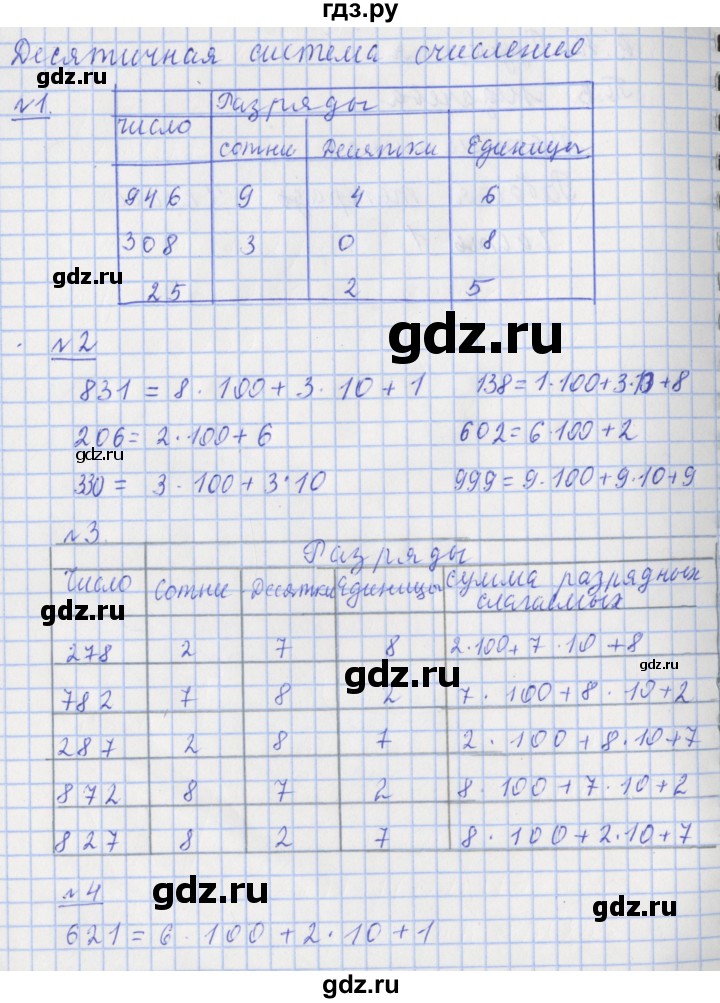 гдз.ру
Десятичная система счисления
gdz.ru
№1.
Разряды
число
сотни Десятки Единицы
946 9 4 6
308 3 0 8
gdz.ru
25 2 5
gdz.ru
№2
831 = 8 · 100 + 3 · 10 + 1 138 = 1 · 100 + 3 · 10 + 8
206 = 2 · 100 + 6 602 = 6 · 100 + 2
gdz.ru gdz.ru
330 = 3 · 100 + 3 · 10 999 = 9 · 100 + 9 · 10 + 9
№3.
Разряды
Число Сотни Десятки Единицы сумма разрядных слагаемых
278 2 7 8 2 · 100 + 7 · 10 + 8
gdz.ru gdz.ru
782 7 8 2 7 · 100 + 8 · 10 + 2
287 2 8 7 2 · 100 + 8 · 10 + 7
872 8 7 2 8 · 100 + 7 · 10 + 2
827 8 2 7 8 · 100 + 2 · 10 + 7
№4
gdz.ru gdz.ru
621 = 6 · 100 + 2 · 10 + 1
gdz.ru
gdz.ru